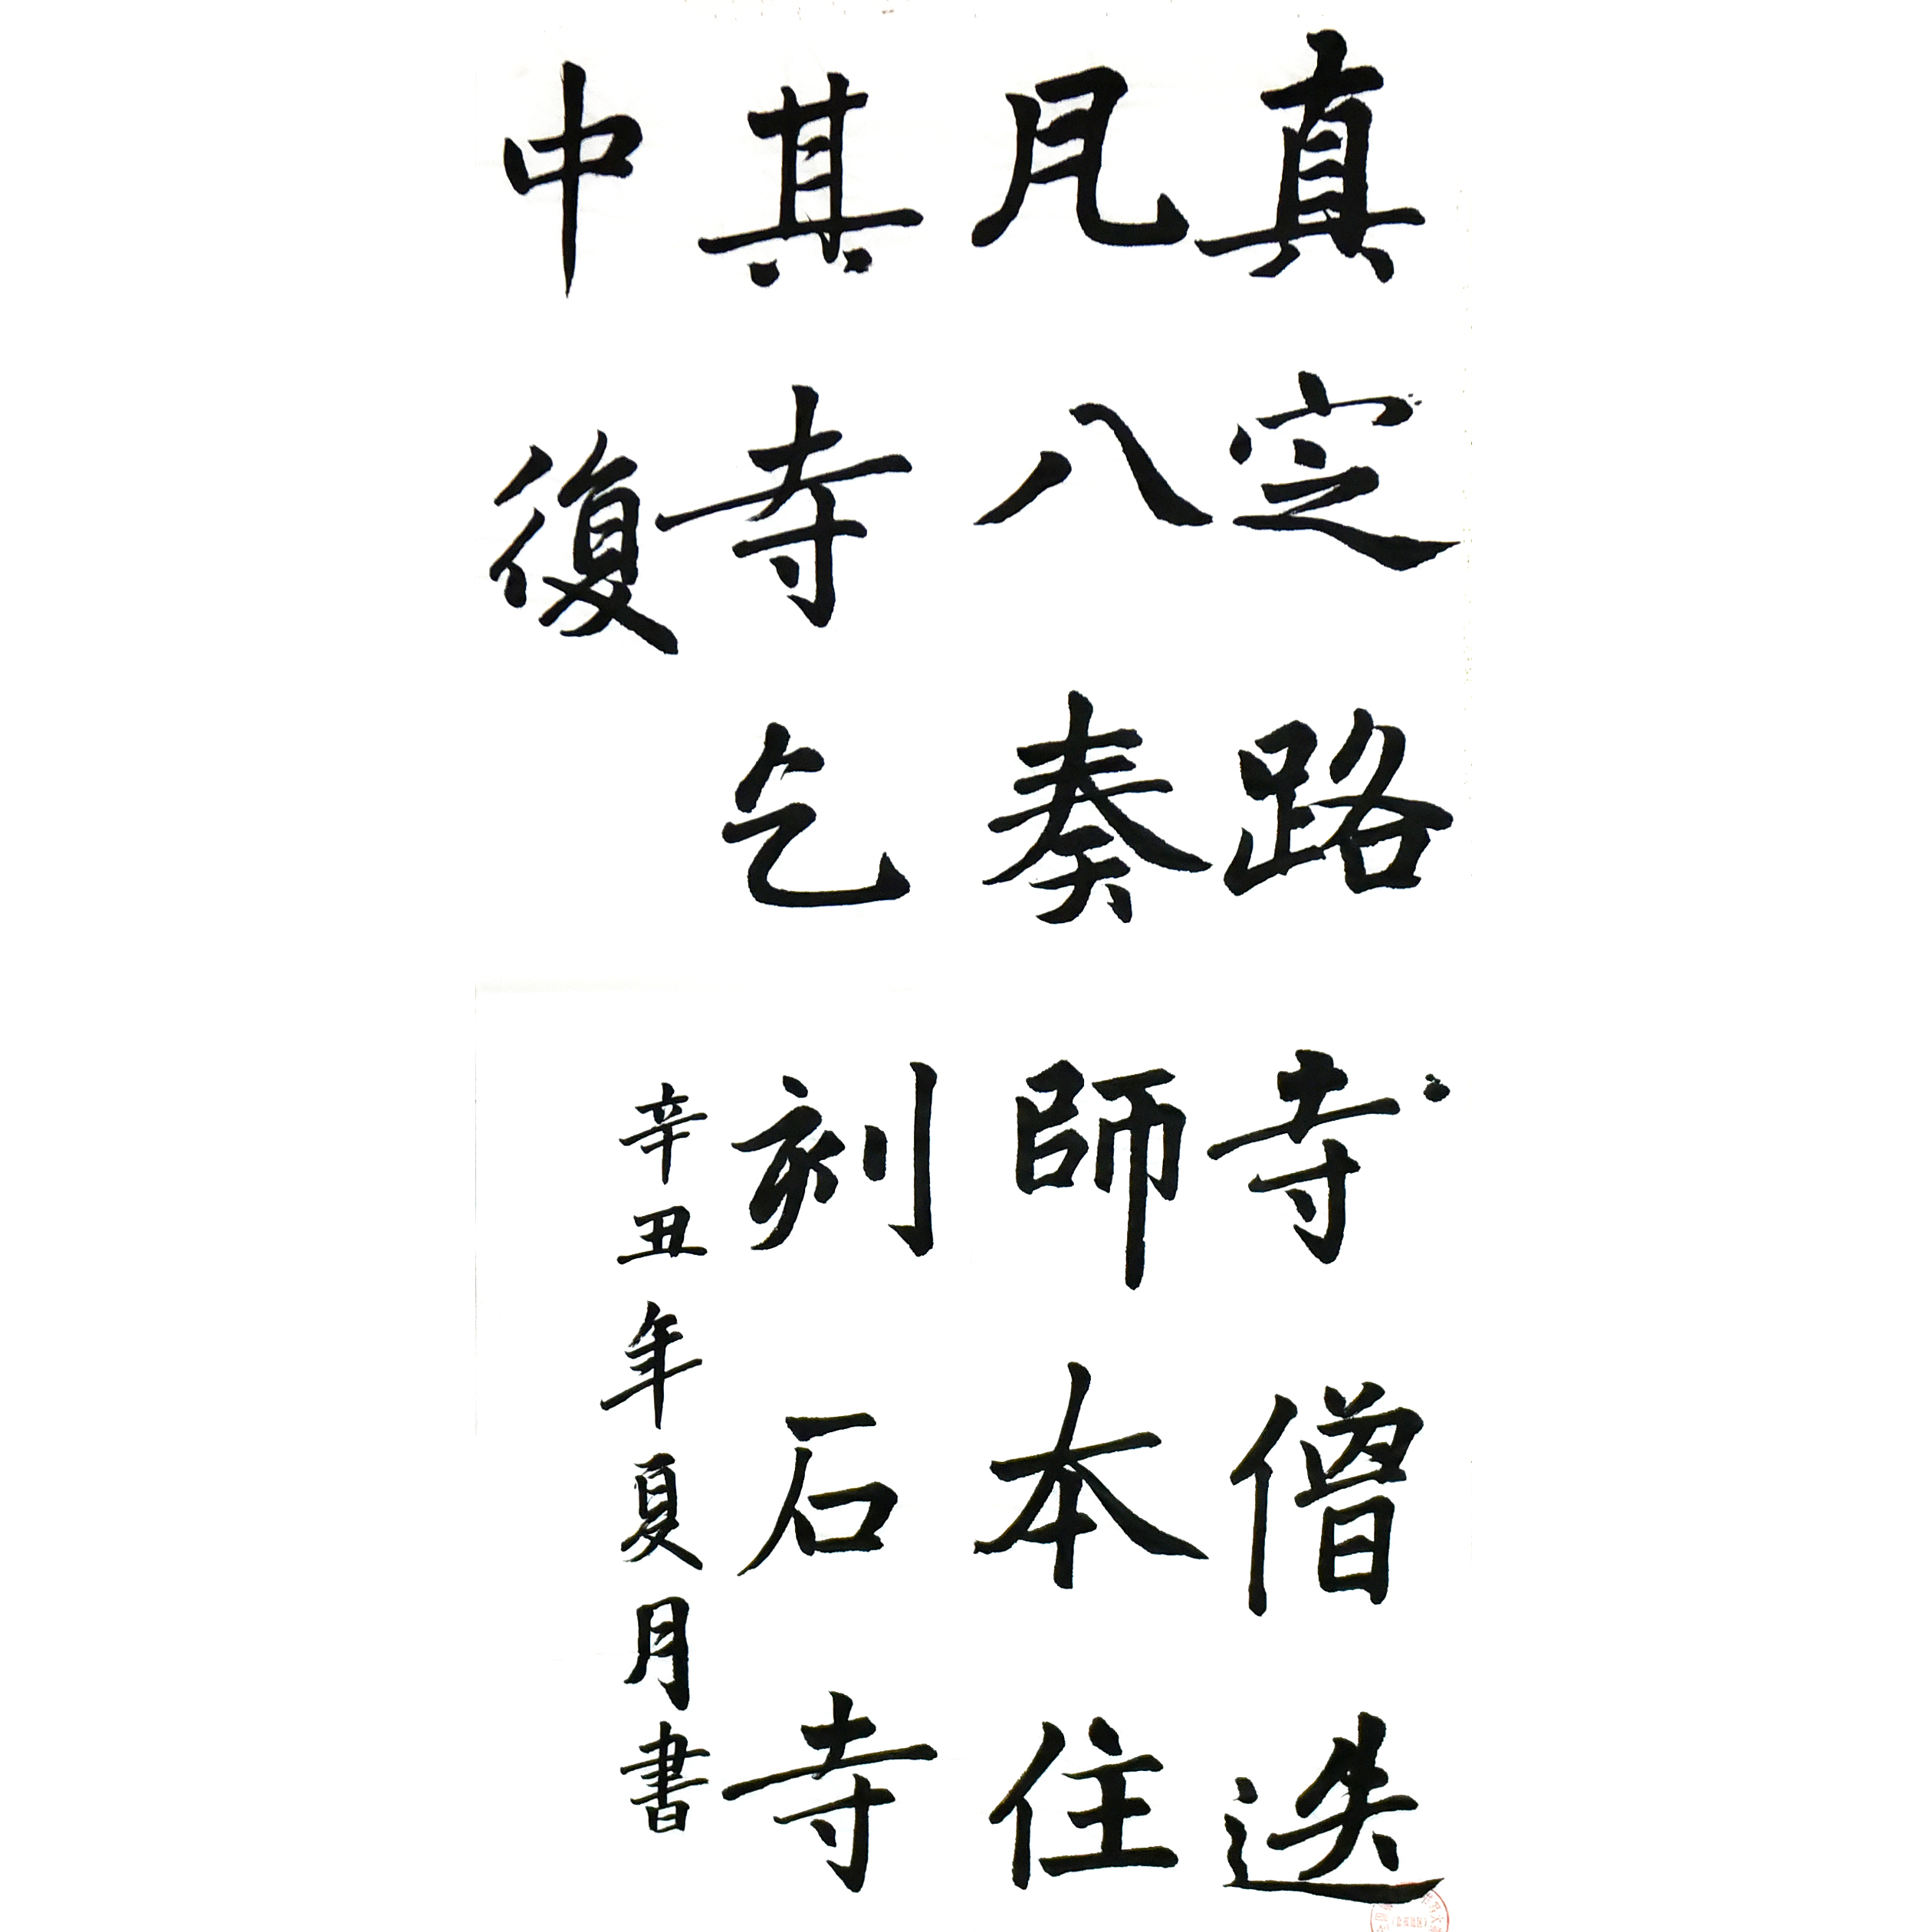 真定路寺僧迭
凡八奏師本住
其寺乞刻石寺
中復
辛丑年夏月書